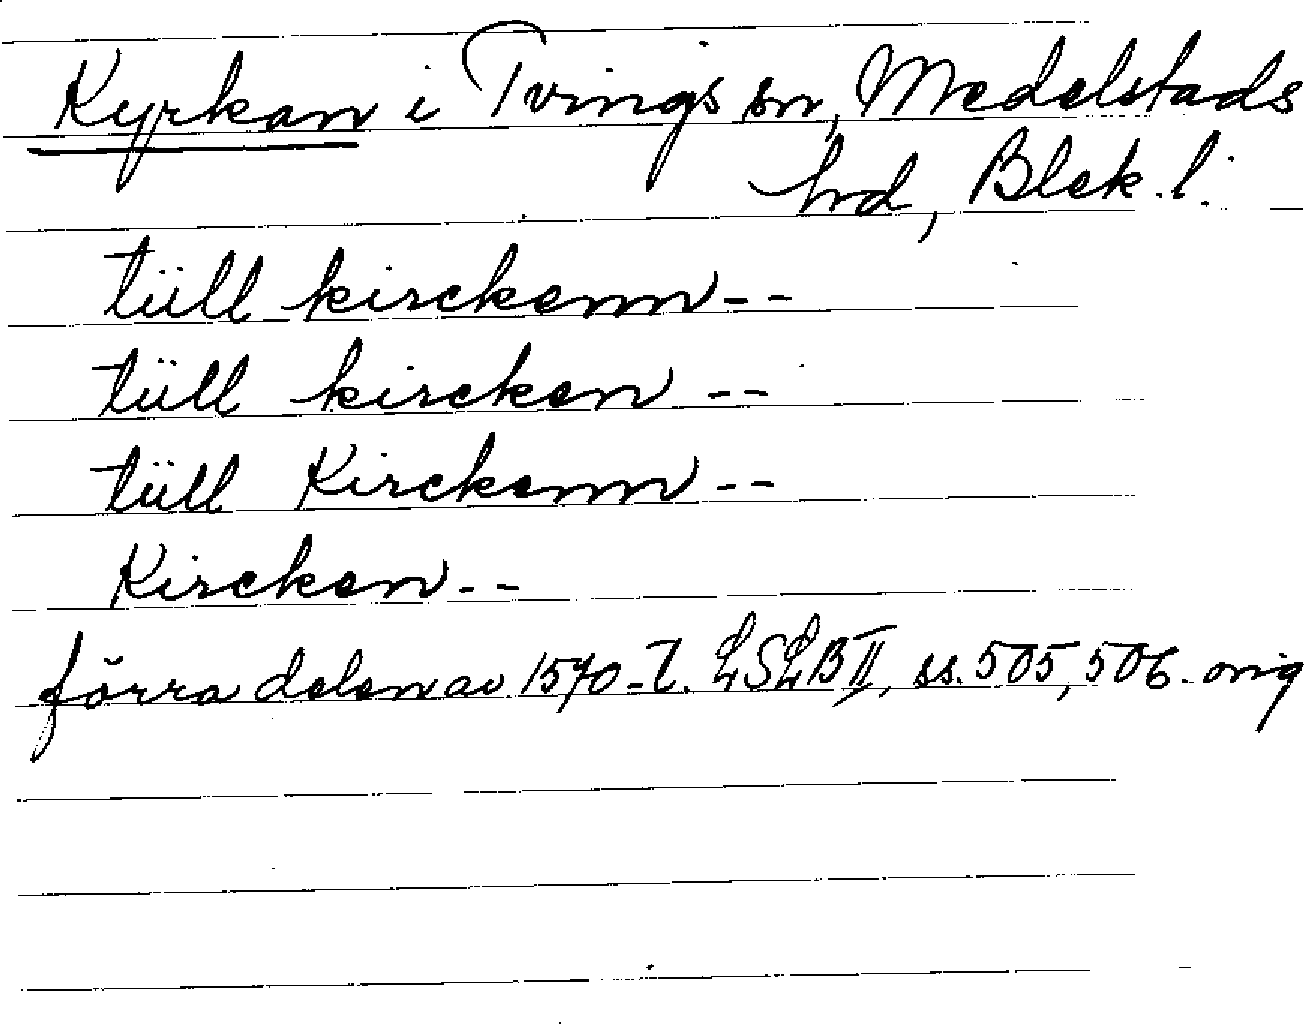 Kyrkan i Tvings sn, Medelstads
hrd, Blek. l.
tüll kirckenn --
tüll kircken --
tüll Kirckenn --
Kircken --
förra delen av 1570-t. LSLB II, ss. 505, 506. orig